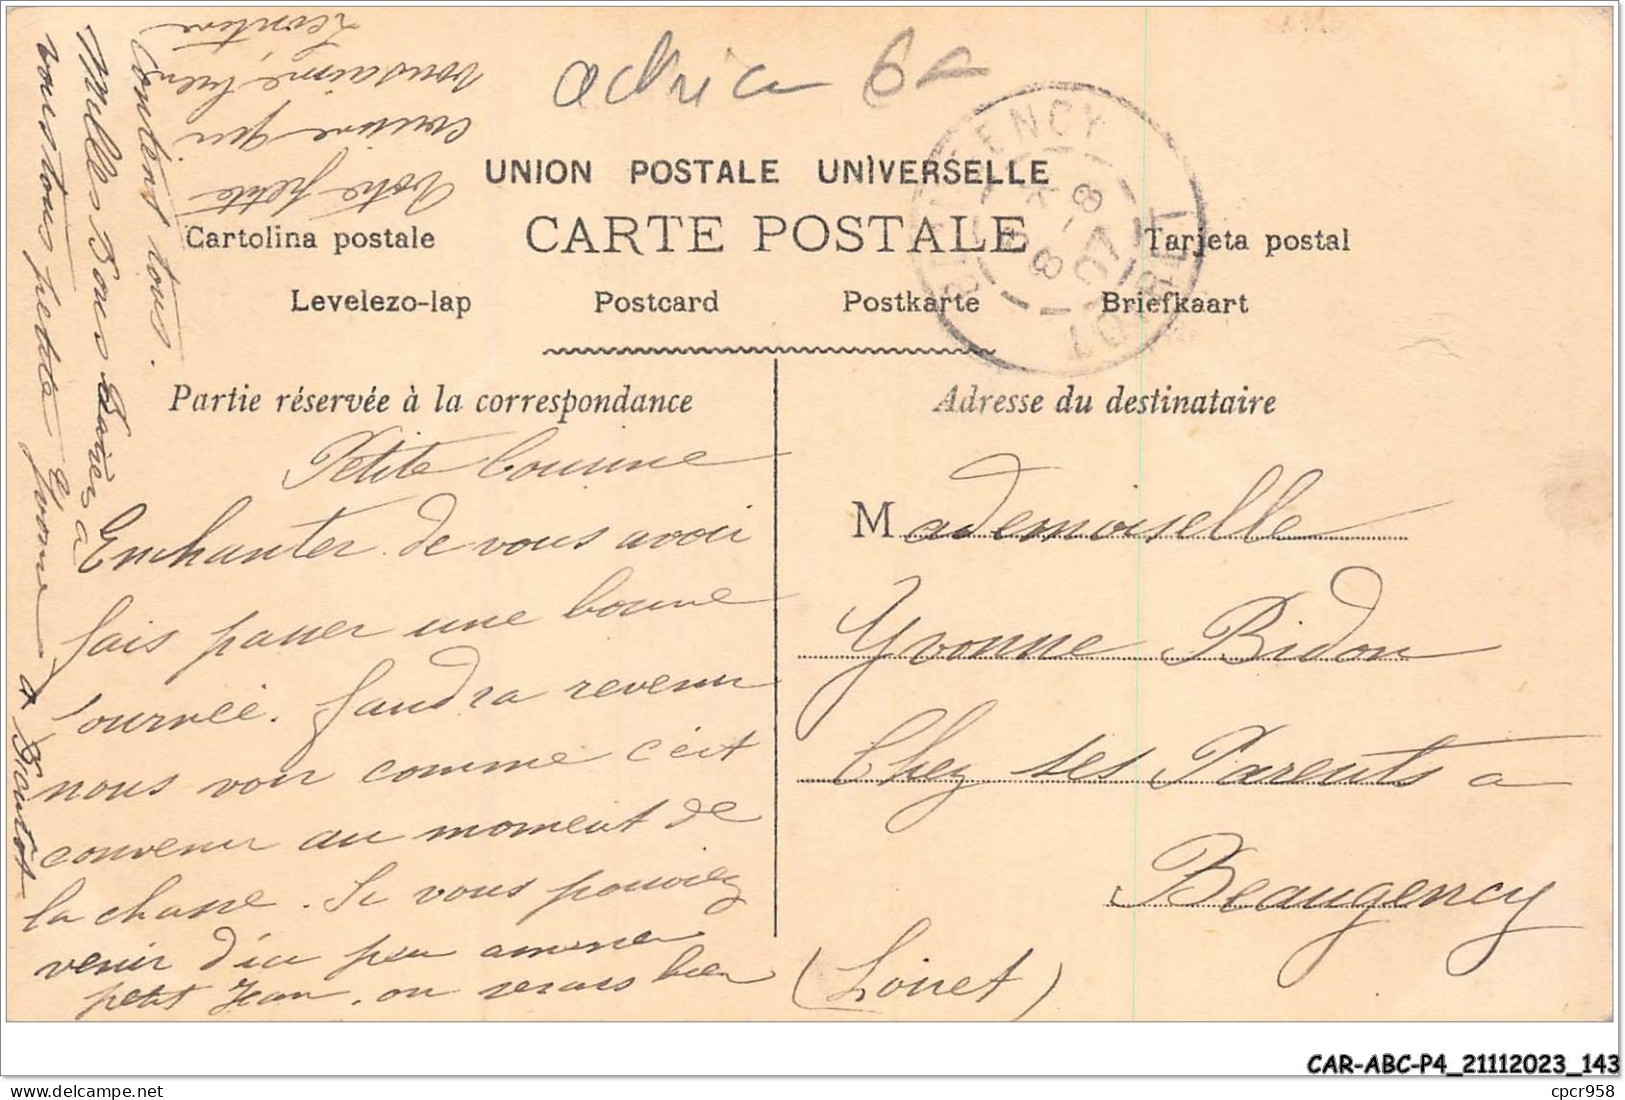 adria 6-
UNION POSTALE UNIVERSELLE
CARTE POSTALE
Cartolina postale
Tarjeta postal
Levelezo-lap
Postcard
Postkarte
Briefkaart
BEAUGENCY
8 - 8
07
LOIRET
Partie réservée à la correspondance
Petite Cousine
Enchanter de vous avoir
fais passer une bonne
Journée. faudra revenir
nous voir comme c'est
convenu au moment de
la chasse. Si vous pouviez
venir d'ici peu amener
petit Jean, on serais bien
Content tous.
Mille Bons Baisers a
vous tous petite Yvonne a Biantot
Votre petite
cousine qui
vous aime bien
Léontine
Adresse du destinataire
Mademoiselle
Yvonne Bidon
Chez ses Parents a
Beaugency
(Loiret)
CAR-ABC-P4_21112023_143
cpcr958